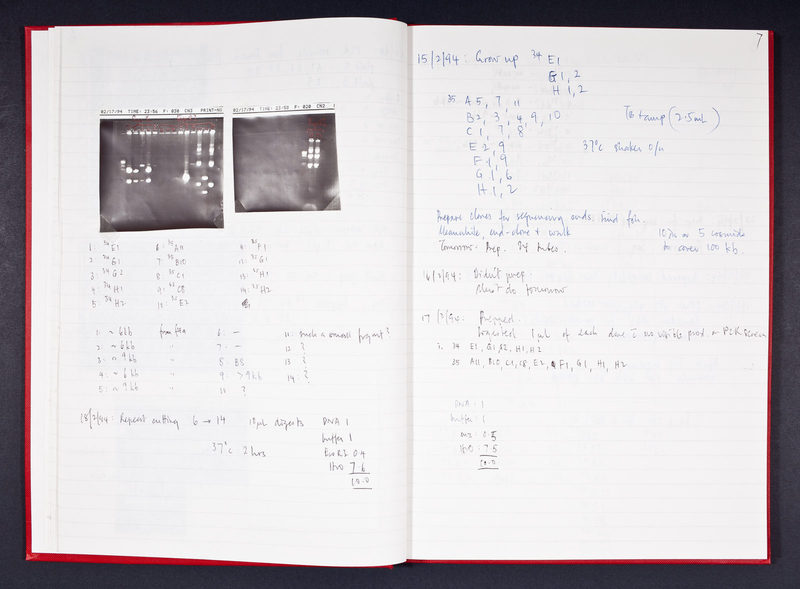 02/17/94 TIME: 23:56 F: 030 CN3 PRINT-NO
02/17/94 TIME: 23:50 F: 020 CN2 1
1. 34 E1 6. 35 A11 11. 35 F1
2. 34 G1 7. 35 B10 12. 35 G1
3. 34 G2 8. 35 C1 13. 35 H1
4. 34 H1 9. 35 C8 14. 35 H2
5. 34 H2 10. 35 E2
1. ~ 6kb 6. — 11. such a small fragment?
2. ~ 6kb " 7. — 12 ?
3. ~ 9kb " 8. 13. ?
4. ~ 6kb " 9. > 9kb 14. ?
5. ~ 9kb " 10 ?
18/2/94: Repeat cutting 6 → 14 10µl digests DNA 1
buffer 1
37°C 2hrs EcoRI 0.4
H2O 7.6
10.0
7
15/2/94: Grow up 34 E1
G1, 2
H1, 2
35 A5, 7, 11
B2, 3, 4, 9, 10 TB + amp (2.5ml)
C1, 7, 8
E2, 9 37°C shaker o/n
F1, 9
G1, 6
H1, 2
Prepare clones for sequencing ends. Find fish.
Meanwhile, end-clone & walk or 5 cosmids
Tomorrow: Prep. 24 tubes. to cover 100 kb.
16/2/94: Didn't prep.
Must do tomorrow
17/2/94: Prepped.
Digested 1µl of each clone
i. 34 E1, G1, G2, H1, H2
35 A11, B10, C1, C8, E2, F1, G1, H1, H2
DNA: 1
buffer: 1
enz: 0.5
H2O: 7.5
10.0